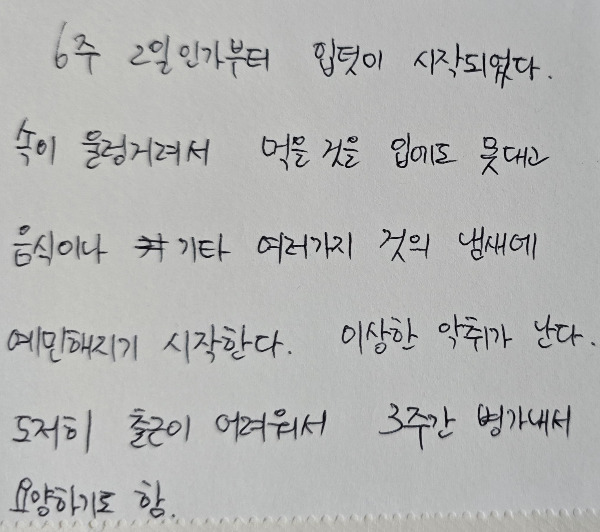 6주 2일인가부터 입덧이 시작되었다.
속이 울렁거려서 먹을 것을 입에도 못대고
음식이나 기타 여러가지 것의 냄새에
예민해지기 시작한다. 이상한 악취가 난다.
도저히 출근이 어려워서 3주간 병가내서
요양하기로 함.